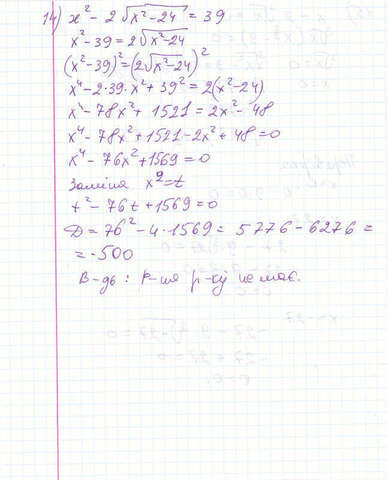 14) x² - 2√(x²-24) = 39
x² - 39 = 2√(x²-24)
(x²-39)² = (2√(x²-24))²
x⁴ - 2·39·x² + 39² = 2(x²-24)
x⁴ - 78x² + 1521 = 2x² - 48
x⁴ - 78x² + 1521 - 2x² + 48 = 0
x⁴ - 76x² + 1569 = 0
Заміна x² = t
t² - 76t + 1569 = 0
D = 76² - 4·1569 = 5776 - 6276 =
= -500
В-дь: р-ня р-ку не має.